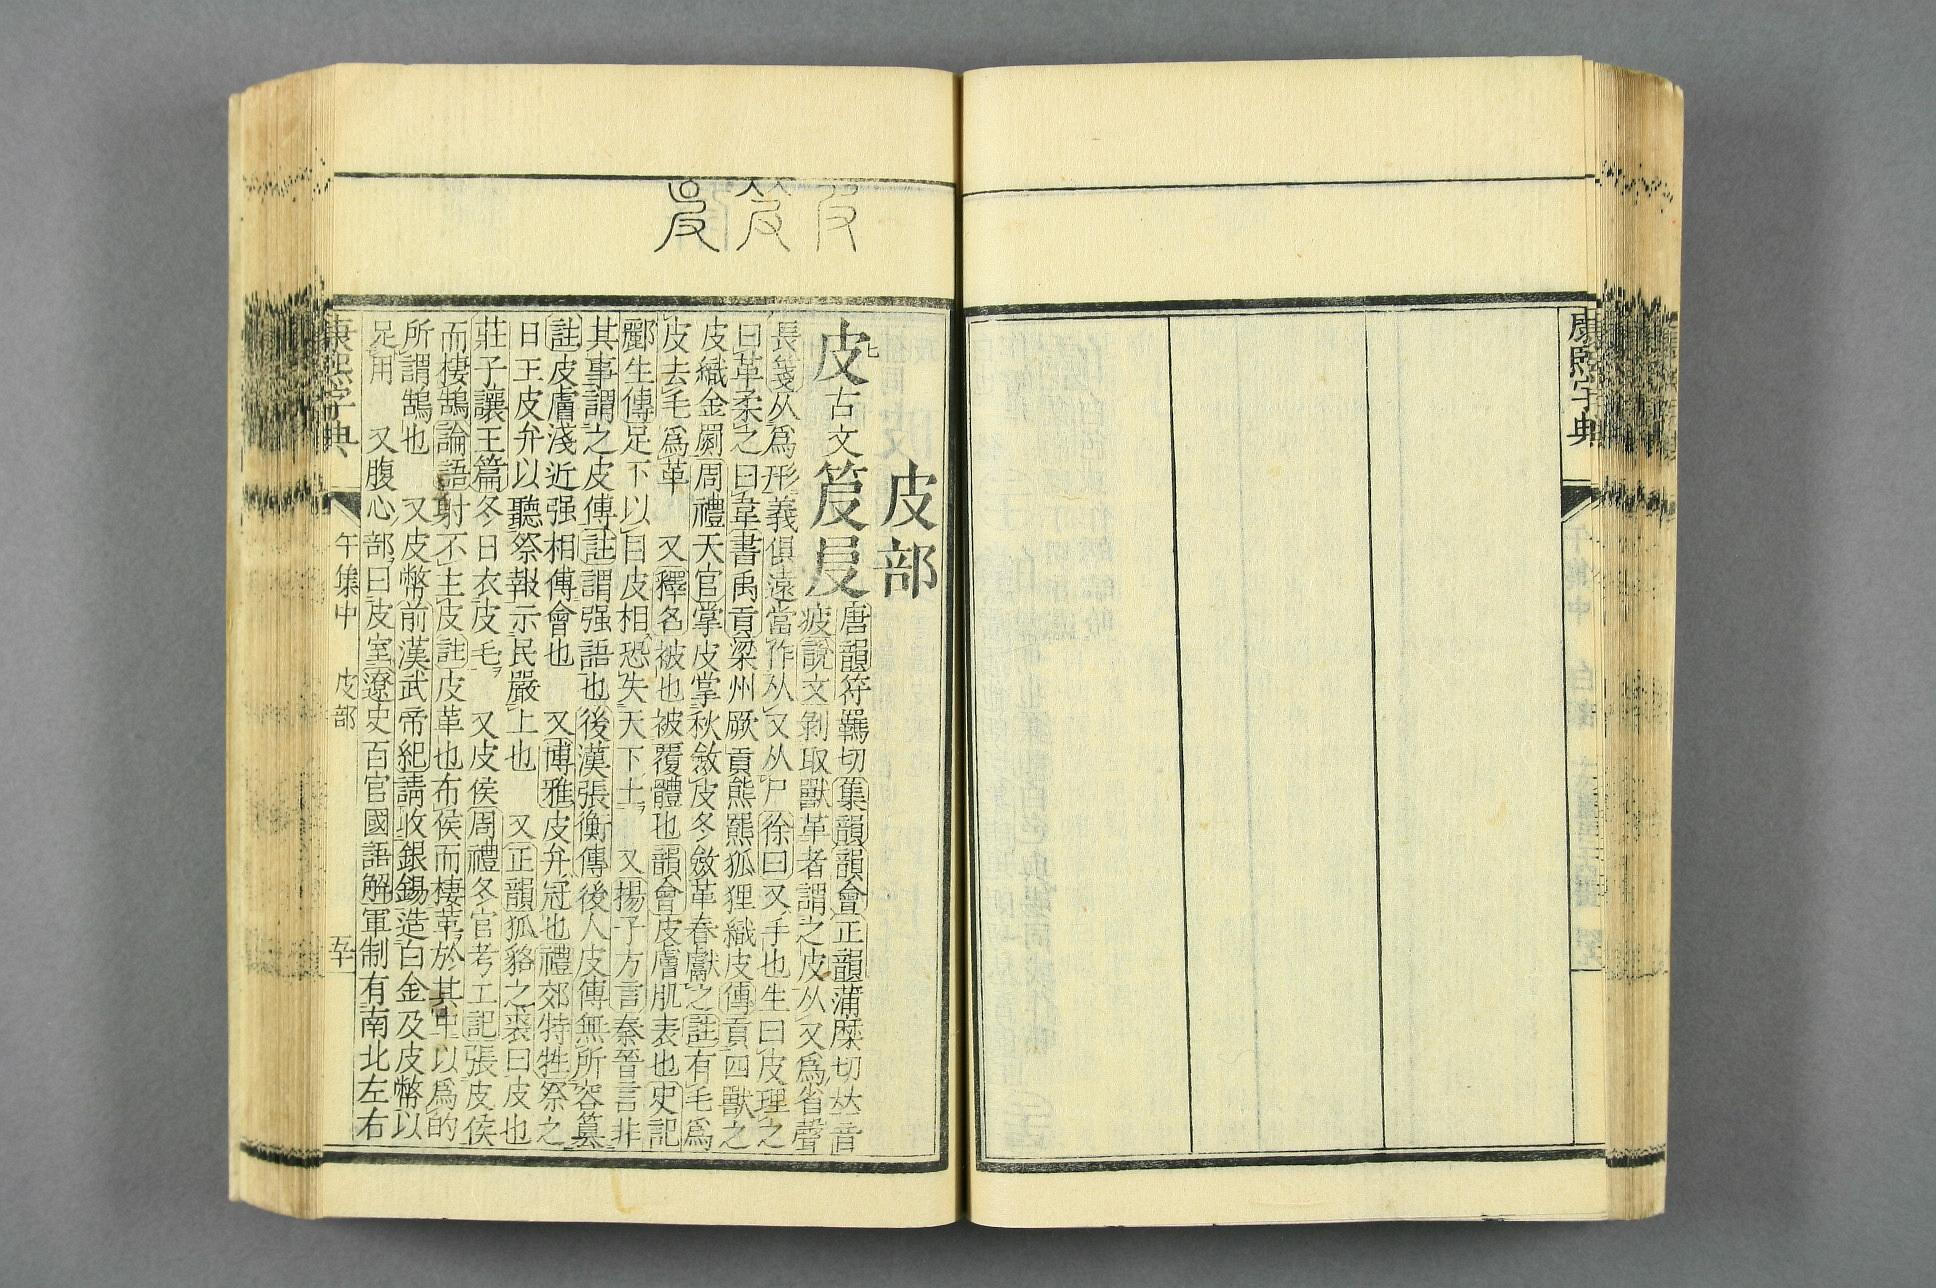 康熙字典
皮部
皮古文笈㞋
唐韻符羈切集韻韻會正韻蒲麋切𠀤音
疲說文剝取獸革者謂之皮从又爲省聲
長箋从爲形義俱遠當作从又从尸徐曰又手也生曰皮理之
曰革柔之曰韋書禹貢梁州厥貢熊羆狐狸織皮傳貢四獸之
皮織金罽周禮天官掌皮掌秋斂皮冬斂革春獻之註有毛爲
皮去毛爲革 又釋名被也被覆體也韻會皮膚肌表也史記
酈生傳足下以目皮相恐失天下士 又揚子方言秦晉言非
其事謂之皮傅註謂强語也後漢張衡傳後人皮傅無所容篡
註皮膚淺近强相傅會也 又博雅皮弁冠也禮郊特牲祭之
日王皮弁以聽祭報示民嚴上也 又正韻狐貉之裘曰皮也
莊子讓王篇冬日衣皮毛 又皮侯周禮冬官考工記張皮侯
而棲鵠論語射不主皮註皮革也布侯而棲革於其中以爲的
所謂鵠也 又皮幣前漢武帝紀請收銀錫造白金及皮幣以
足用 又腹心部曰皮室遼史百官國語解軍制有南北左右
康熙字典 午集中 皮部 五十